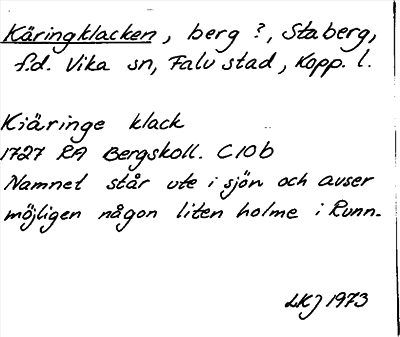 Käringklacken, berg ?, Staberg,
f.d. Vika sn, Falu stad, Kopp. l.
Kiäringe klack
1727 RA Bergskoll. C10b
Namnet står ute i sjön och avser
möjligen någon liten holme i Runn.
LKJ 1973